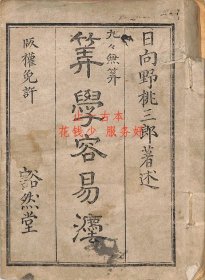 日向野桃三郎著述
九々無算
筭學容易
版權免許
谿然堂
花钱少 服务好